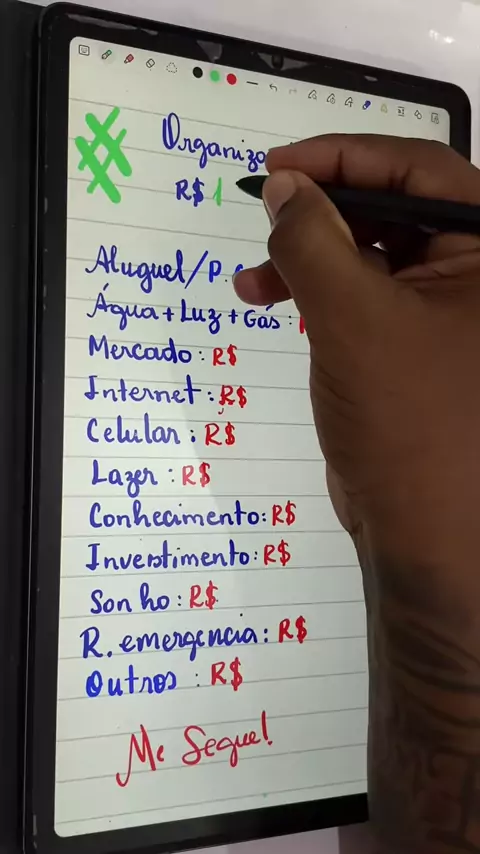 R$ 1
Aluguel/P.
Água + Luz + Gás :
Mercado : R$
Internet : R$
Celular : R$
Lazer : R$
Conhecimento: R$
Investimento: R$
Sonho : R$
R. emergencia : R$
Outros : R$
Me Segue!